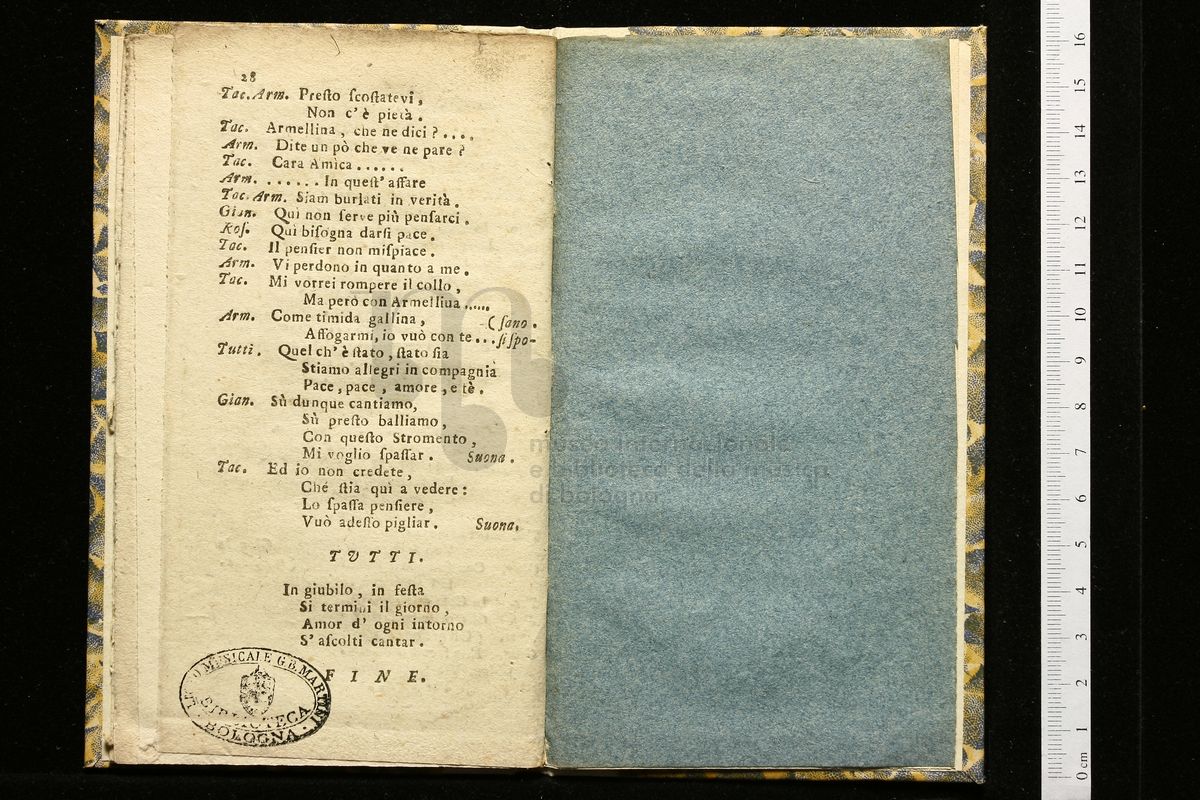 28
Tac. Arm. Preſto ſcoſtatevi,
Non c'è pietà.
Tac. Armellina, che ne dici? ....
Arm. Dite un pò che ve ne pare?
Tac. Cara Amica ......
Arm. ...... In queſt' affare
Tac. Arm. Siam burlati in verità.
Gian. Quì non ſerve più penſarci.
Roſ. Quì biſogna darſi pace.
Tac. Il penſier non miſpiace.
Arm. Vi perdono in quanto a me.
Tac. Mi vorrei rompere il collo,
Ma però con Armelliua ......
Arm. Come timida gallina, (ſano.
Affogarmi, io vuò con te... ſi ſpo-
Tutti. Quel ch' è ſtato, ſtato ſia
Stiamo allegri in compagnia
Pace, pace, amore, e tè.
Gian. Sù dunque cantiamo,
Sù preſto balliamo,
Con queſto Stromento,
Mi voglio ſpaſſar. Suona.
Tac. Ed io non credete,
Ché ſtia quì a vedere:
Lo ſpaſſa penſiere,
Vuò adeſſo pigliar. Suona.
TUTTI.
In giubilo, in feſta
Si termini il giorno,
Amor d' ogni intorno
S' aſcolti cantar.
FINE.
LICEO MUSICALE G.B. MARTINI
BIBLIOTECA
BOLOGNA
museo internazionale
e biblioteca della musica
di bologna
0 cm 1 2 3 4 5 6 7 8 9 10 11 12 13 14 15 16